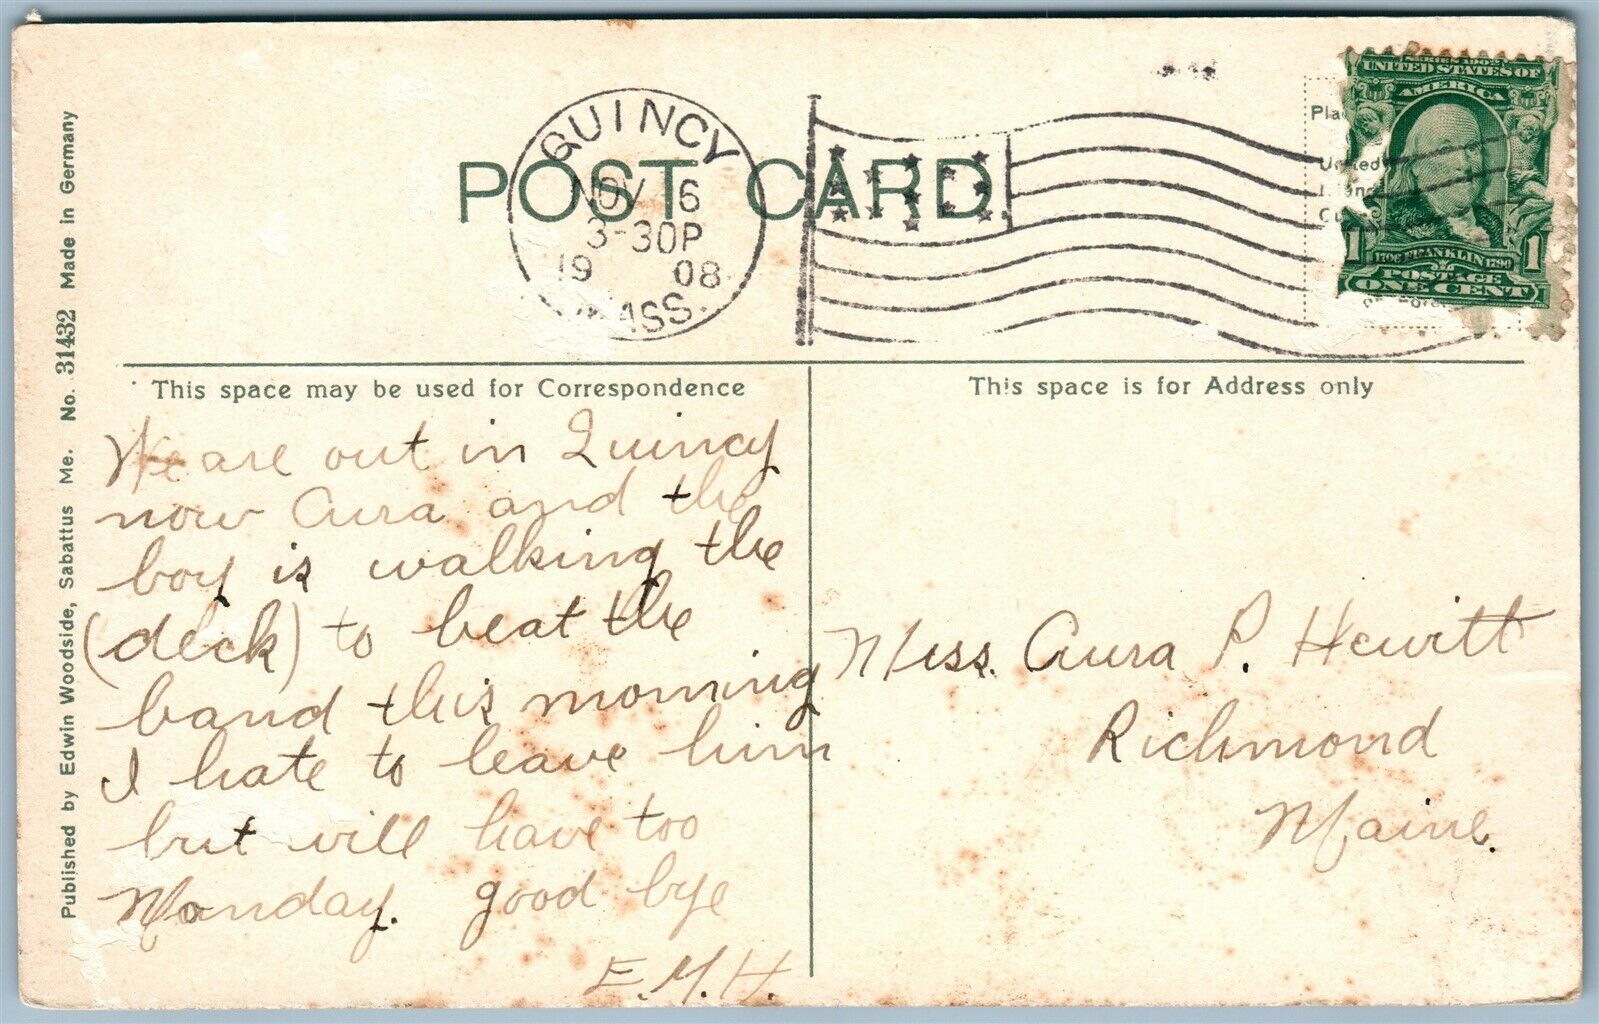 POST CARD
QUINCY
NOV 6
3-30P
19 08
MASS.
SERIES 1902
UNITED STATES OF
AMERICA
1 1706 FRANKLIN 1790 1
POSTAGE
ONE CENT
This space may be used for Correspondence
This space is for Address only
We are out in Quincy
now Aura and the
boy is walking the
(deck) to beat the
band this morning
I hate to leave him
but will have too
Monday. good bye
E.M.H.
Miss. Aura P. Hewitt
Richmond
Maine.
Published by Edwin Woodside, Sabattus Me. No. 31432 Made in Germany